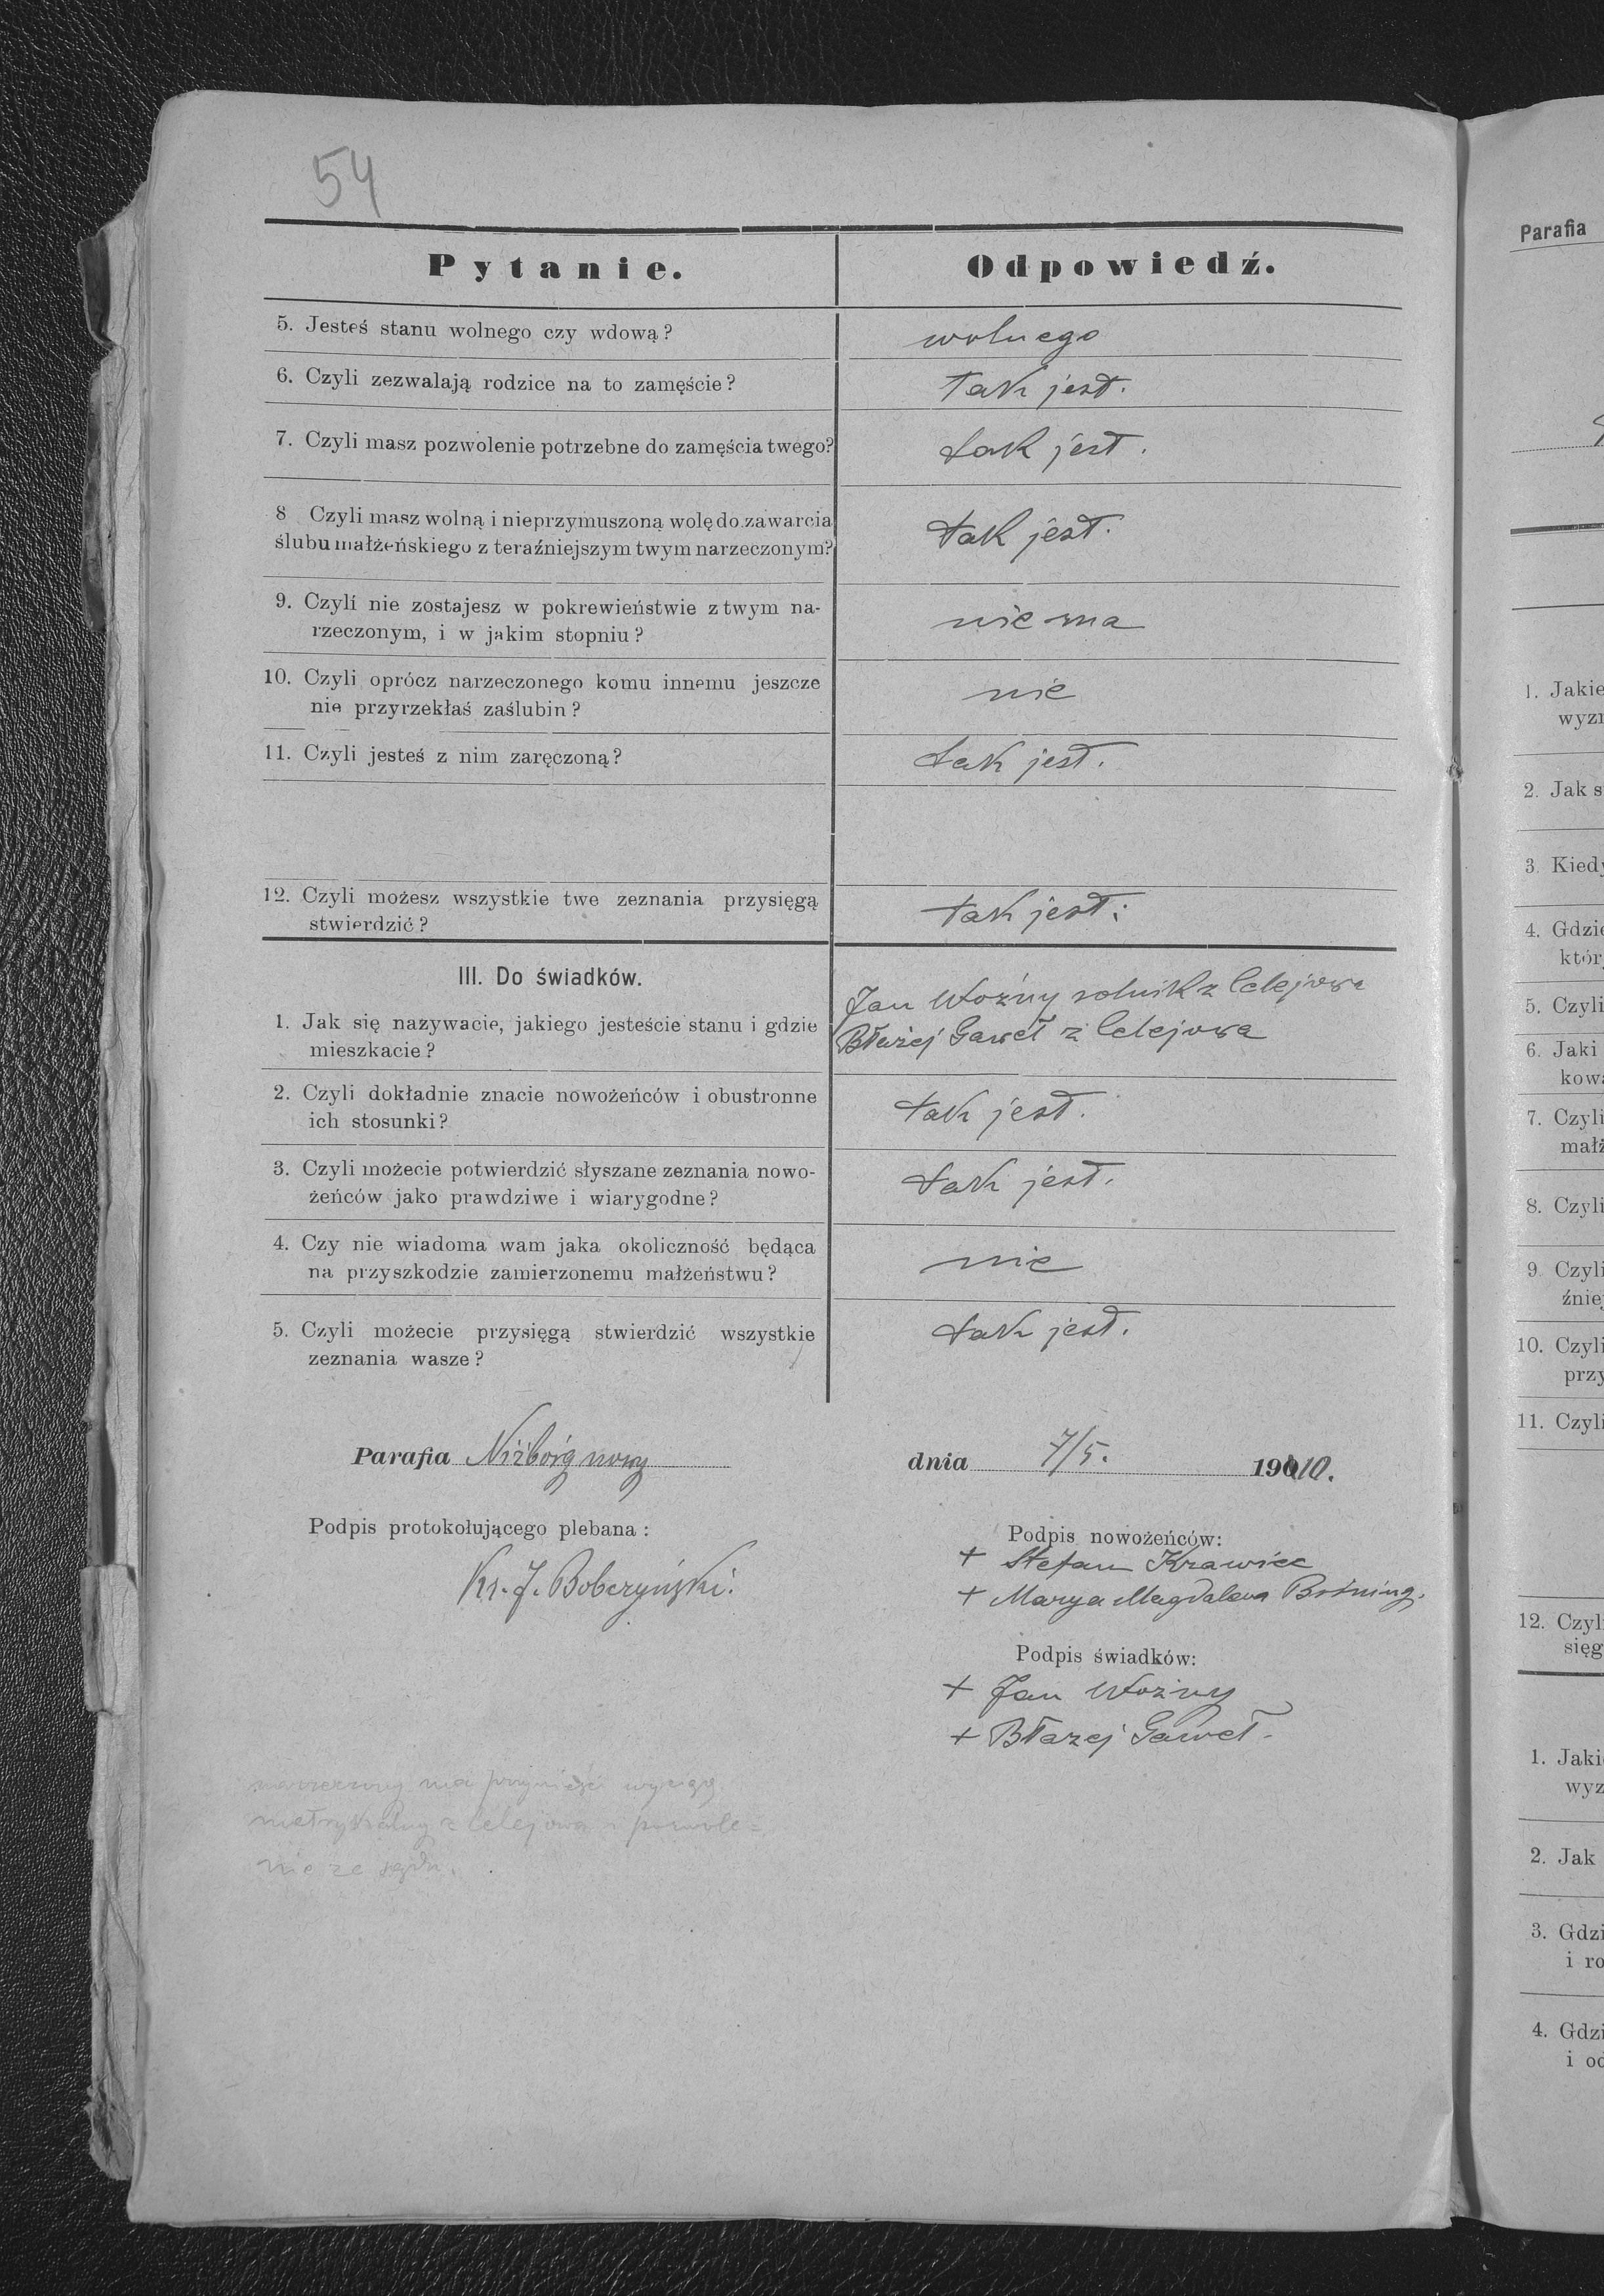 54
Pytanie.
Odpowiedź.
5. Jesteś stanu wolnego czy wdową?
wolnego
6. Czyli zezwalają rodzice na to zamęście?
Tak jest.
7. Czyli masz pozwolenie potrzebne do zamęścia twego?
tak jest.
8 Czyli masz wolną i nieprzymuszoną wolę do zawarcia
ślubu małżeńskiego z teraźniejszym twym narzeczonym?
tak jest.
9. Czyli nie zostajesz w pokrewieństwie z twym na-
rzeczonym, i w jakim stopniu?
nie ma
10. Czyli oprócz narzeczonego komu innemu jeszcze
nie przyrzekłaś zaślubin?
nie
11. Czyli jesteś z nim zaręczoną?
tak jest.
12. Czyli możesz wszystkie twe zeznania przysięgą
stwierdzić?
tak jest.
III. Do świadków.
1. Jak się nazywacie, jakiego jesteście stanu i gdzie
mieszkacie?
Jan Woźny rolnik z Celejowa
Błażej Gaweł z Celejowa
2. Czyli dokładnie znacie nowożeńców i obustronne
ich stosunki?
tak jest.
3. Czyli możecie potwierdzić słyszane zeznania nowo-
żeńców jako prawdziwe i wiarygodne?
tak jest.
4. Czy nie wiadoma wam jaka okoliczność będąca
na przyszkodzie zamierzonemu małżeństwu?
nie
5. Czyli możecie przysięgą stwierdzić wszystkie
zeznania wasze?
tak jest.
Parafia Niżbórg nowy
dnia 7/5. 1910.
Podpis protokołującego plebana:
Ks. J. Bobczyński.
Podpis nowożeńców:
+ Stefan Krawiec
+ Marya Magdalena
Podpis świadków:
+ Jan Woźny
+ Błazej Gaweł.
narzeczony ma przynieść wyciąg
metrykalny z Celejowa i pozwole-
nie ze sądu.
Parafia
1. Jakie
2. Jak
3.
4.
5. Czyli
6. Jaki
7. Czyli
8. Czyli
9. Czyli
10. Czyli
11. Czyli
12.
1.
2. Jak
3.
i
4.
i